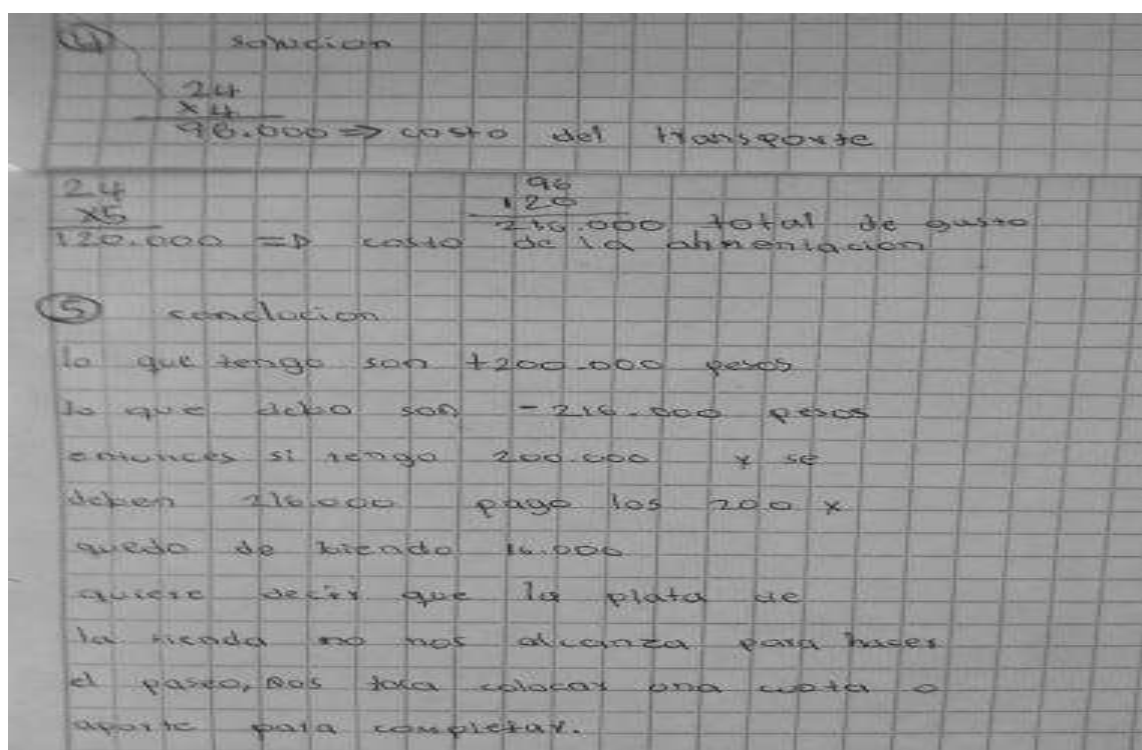 ④ solucion
24
x 4
96.000 => costo del transporte
24
x5
120.000 => costo de la alimentacion
96
120
216.000 total de gasto
⑤ conclucion
lo que tengo son +200.000 pesos
lo que debo son -216.000 pesos
entonces si tengo 200.000 y se
deben 216.000 pago los 200 y
quedo de biendo 16.000
quiere decir que la plata de
la no nos alcanza para hacer
el paseo, nos toca colocar una cuota o
aporte para completar.